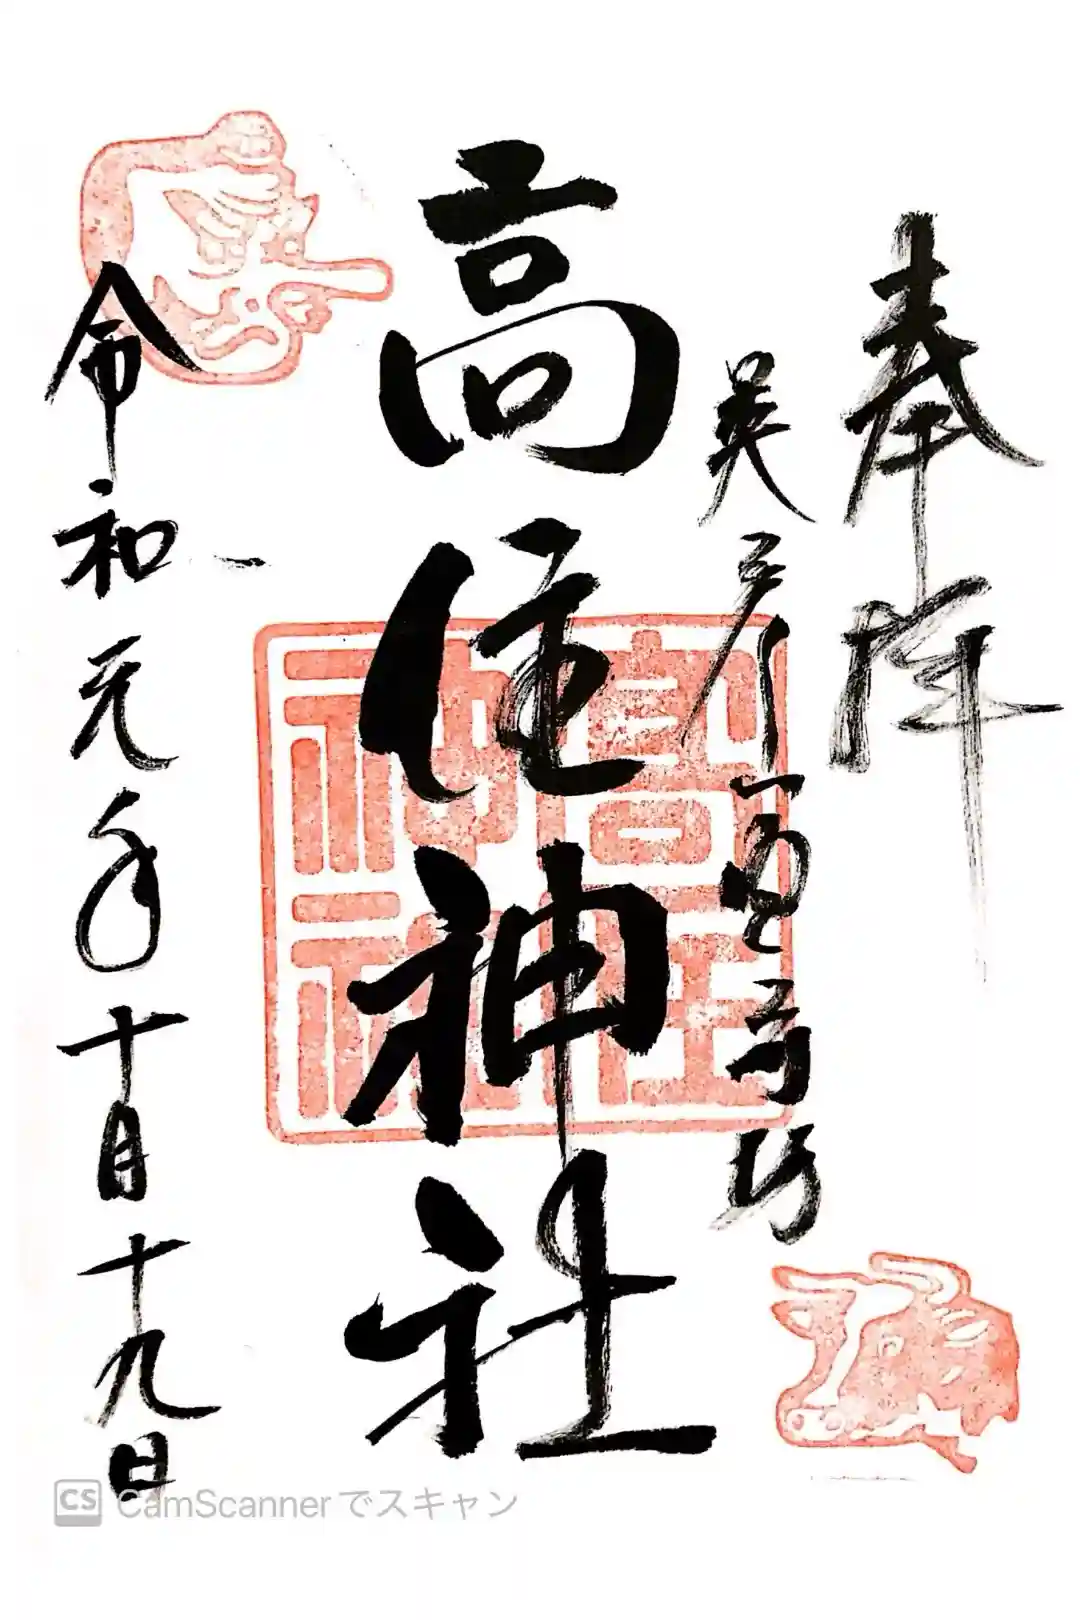 奉拝
英彦山豊前坊
高住神社
高住
神社
令和元年十月十九日
CS CamScannerでスキャン